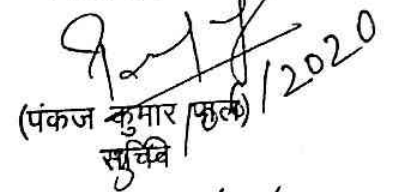 /2020
(पंकज कुमार पाल)
सचिव